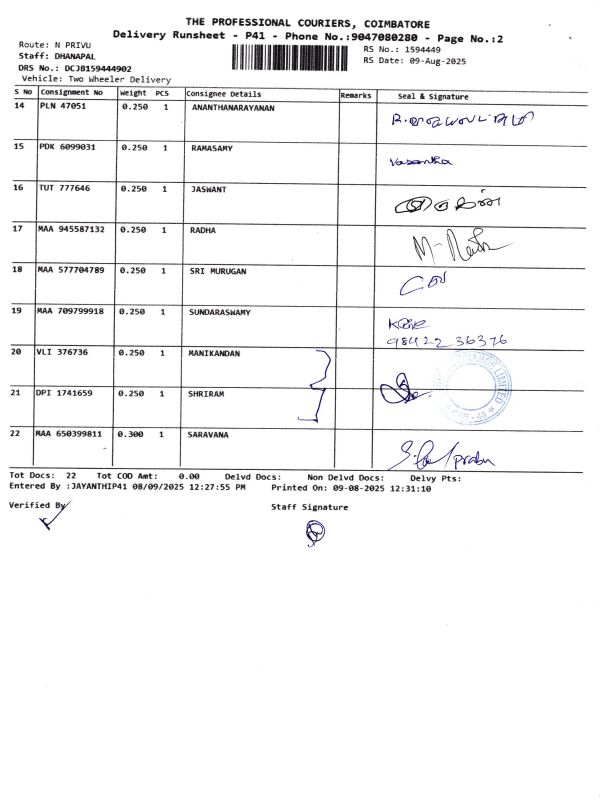 THE PROFESSIONAL COURIERS, COIMBATORE
Delivery Runsheet - P41 - Phone No.:9047080280 - Page No.:2
Route: N PRIVU
RS No.: 1594449
Staff: DHANAPAL
RS Date: 09-Aug-2025
DRS No.: DCJB159444902
Vehicle: Two Wheeler Delivery
S No Consignment No Weight PCS Consignee Details Remarks Seal & Signature
14 PLN 47051 0.250 1 ANANTHANARAYANAN
15 PDK 6099031 0.250 1 RAMASAMY Vasantha
16 TUT 777646 0.250 1 JASWANT
17 MAA 945587132 0.250 1 RADHA
18 MAA 577704789 0.250 1 SRI MURUGAN
19 MAA 709799918 0.250 1 SUNDARASWAMY
98422 36376
20 VLI 376736 0.250 1 MANIKANDAN
21 DPI 1741659 0.250 1 SHRIRAM
22 MAA 650399811 0.300 1 SARAVANA
Tot Docs: 22 Tot COD Amt: 0.00 Delvd Docs: Non Delvd Docs: Delvy Pts:
Entered By :JAYANTHIP41 08/09/2025 12:27:55 PM Printed On: 09-08-2025 12:31:10
Verified By
Staff Signature